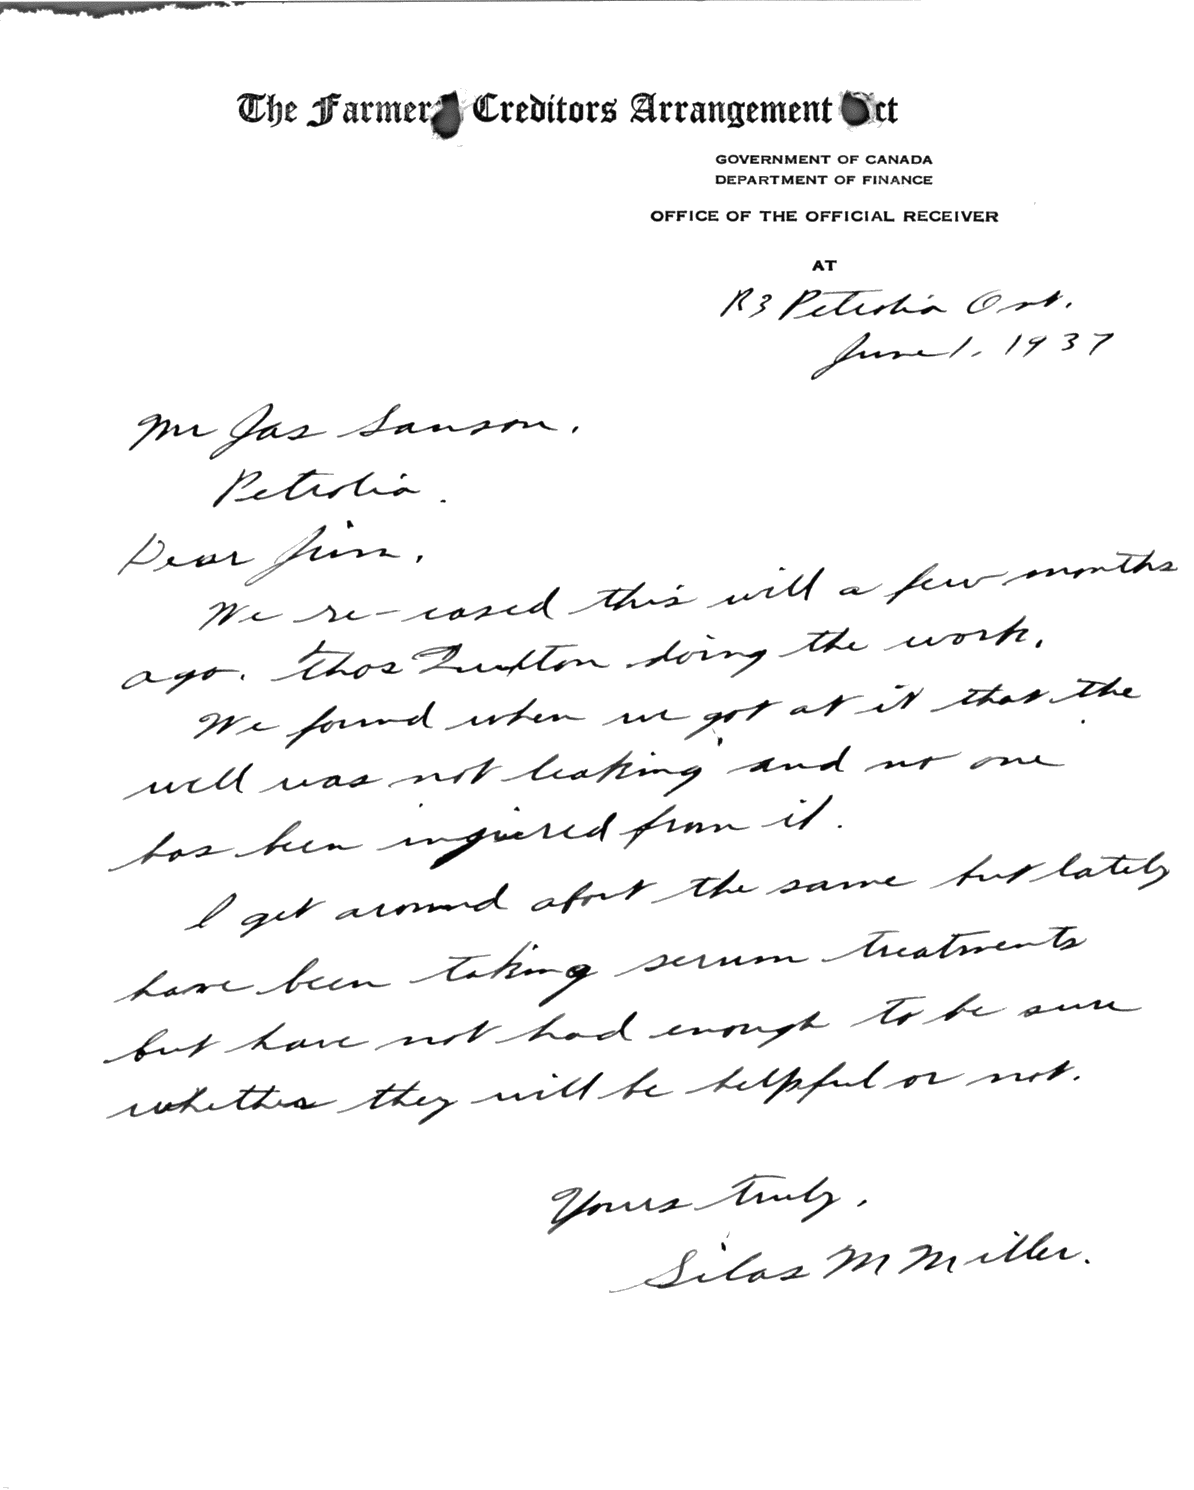 The Farmers Creditors Arrangement Act
GOVERNMENT OF CANADA
DEPARTMENT OF FINANCE
OFFICE OF THE OFFICIAL RECEIVER
AT
R3 Petrolia Ont.
June 1, 1937
Mr Jas Sanson,
Petrolia.
Dear Jim,
We re-cased this will a few months
ago. Thos doing the work.
We found when we got at it that the
well was not leaking and no one
has been injuered from it.
I get around about the same but lately
have been taking serum treatments
but have not had enough to be sure
whether they will be helpful or not.
Yours truly,
Silas M Miller.